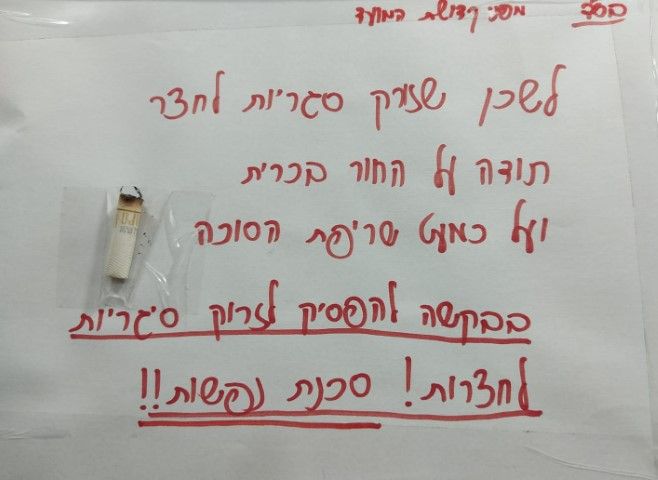 בס״ד מפני קדושת המועד
לשכן שזורק סגריות לחצר
תודה על החור בכרית
ועל כמעט שריפת הסוכה
בבקשה להפסיק לזרוק סיגריות
לחצרות! סכנת נפשות!!